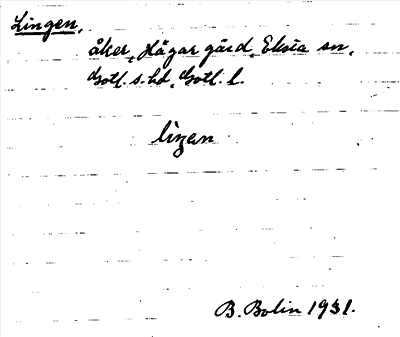 Lingen,
åker, Hägar gård, Eksta sn,
Gotl. s. hd, Gotl. l.
lìŋen
B. Bolin 1931.